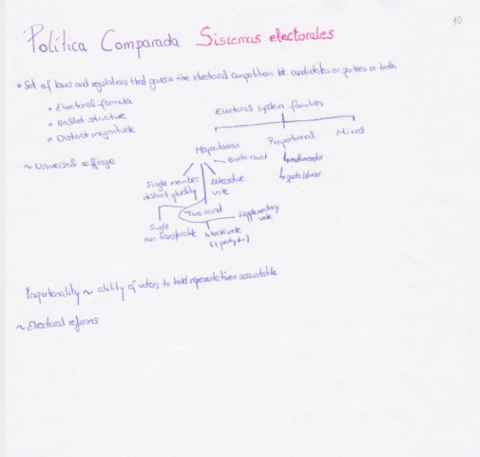 10
Política Comparada Sistemas electorales
• Set of laws and regulations that govern the electoral competition bt. candidates or parties or both
• Electoral formula
• Ballot structure
• District magnitude
Electoral system families
Majoritarian Proportional Mixed
~ Universal suffrage
Single member
district plurality
Alternative
vote
Two round
Supplementary
vote
Single
non transferable
block vote
Proportionality ~ ability of voters to hold representatives accountable
~ Electoral reforms